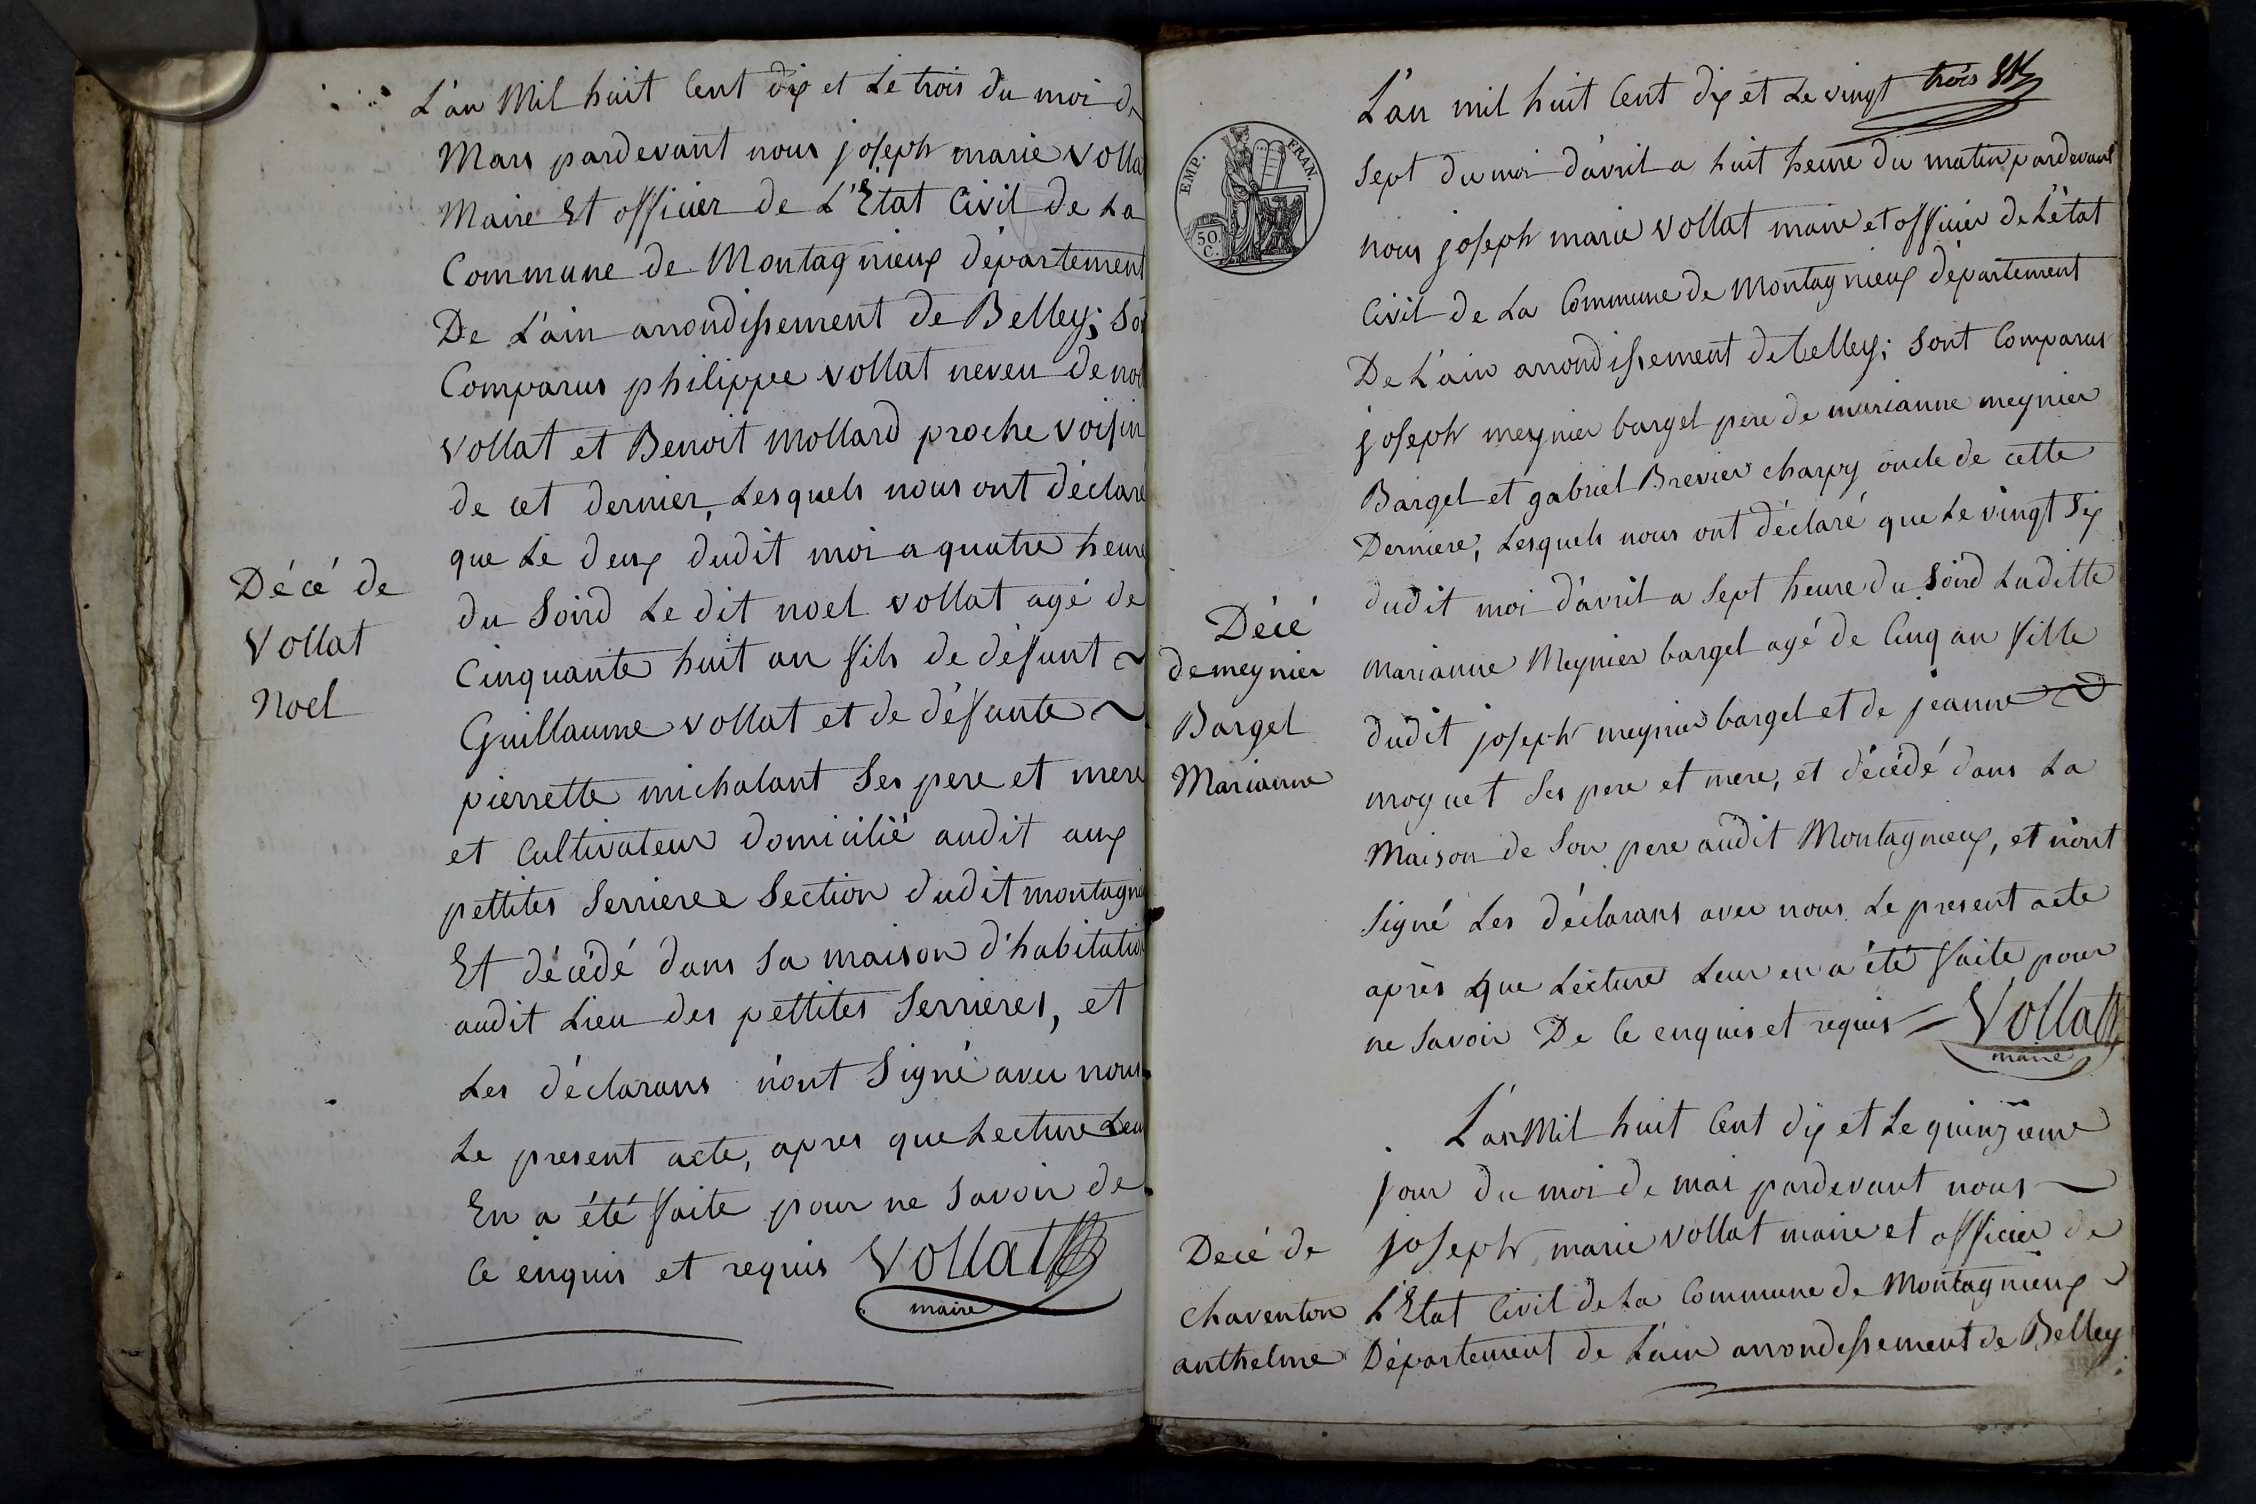 L'an Mil huit Cent dix et Le trois du moi de
Mars pardevant nous joseph marie volla
Maire Et officier de L'Etat Civil de La
Commune de Montagnieux département
De L'ain arrondissement de Belley; So
Comparus philippe vollat neveu de noe
vollat et Benoit mollard proche voisin
de cet dernier, Lesquels nous ont déclaré
que Le deux dudit moi a quatre heure
du Soird Le dit noel vollat agé de
Cinquante huit an fils de défunt ~
Guillaume vollat et de défunte ~
pierrette michalant Ses pere et mere
et Cultivateur domicilié audit aux
pettites Serrieree Section dudit montagni
Et décédé dans Sa maison d'habitatio
audit Lieu des pettites Serrieres, et
Les déclarans n'ont Signé avec nous
Le present acte, apres que Lecture Leu
En a été faite pour ne Savoir de
Ce enquis et requis Vollat
maire
Décé de
Vollat
Noel
trois
L'an mil huit Cent dix et Le vingt
Sept du moi d'avril a huit heure du matin pardevant
nous joseph marie vollat maire et officier de L'état
Civil de La Commune de Montagnieux département
De L'ain arrondissement de belley; Sont Comparus
joseph meynier bargel pere de marianne meynier
Bargel et gabriel Brevier charpy oncle de cette
Derniere, Lesquels nous ont déclaré que Le vingt Six
dudit moi d'avril a Sept heure du Soird Laditte
marianne Meynier bargel agé de Cinq an fille
dudit joseph meynier bargel et de jeanne
moguet Ses pere et mere, et décédé dans La
Maison de Son pere audit Montagnieux, et n'ont
Signé Les déclarans avec nous Le present acte
après que Lecture Leur en a été faite pour
ne Savoir De Ce enquis et requis = Vollat
maire
EMP. FRAN.
50.
C.
Décé
de meynier
Bargel
Marianne
L'an Mil huit Cent dix et Le quinzieme
jour du moi de mai pardevant nous
joseph marie vollat maire et officier de
L'Etat Civil de La Commune de Montagnieux
Département de L'ain arrondissement de Belley
Decé de
chaventon
anthelme